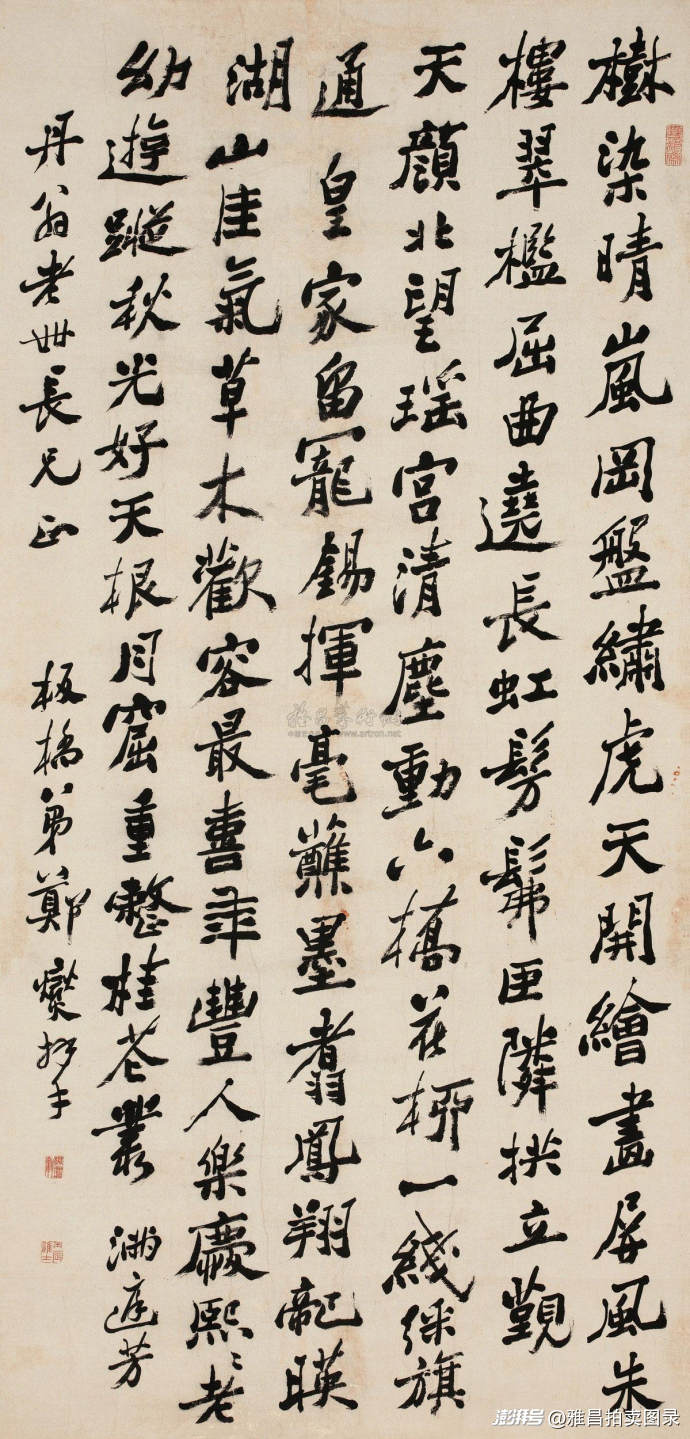 樹染晴嵐岡盤繡虎天開繪畫屏風朱
樓翠檻屈曲遶長虹髣髴臣隣拱立覲
天顏北望瑤宮清塵動六橋花柳一綫綵旗
通皇家留寵錫揮毫蘸墨翥鳳翔龍暎
湖山佳氣草木歡容最喜年豐人樂慶熙〻老
幼遊蹤秋光好天根月窟重整桂花叢 滿庭芳
丹翁老世長兄正 板橋弟鄭燮拜手
www.artron.net
澎湃号@雅昌拍卖图录